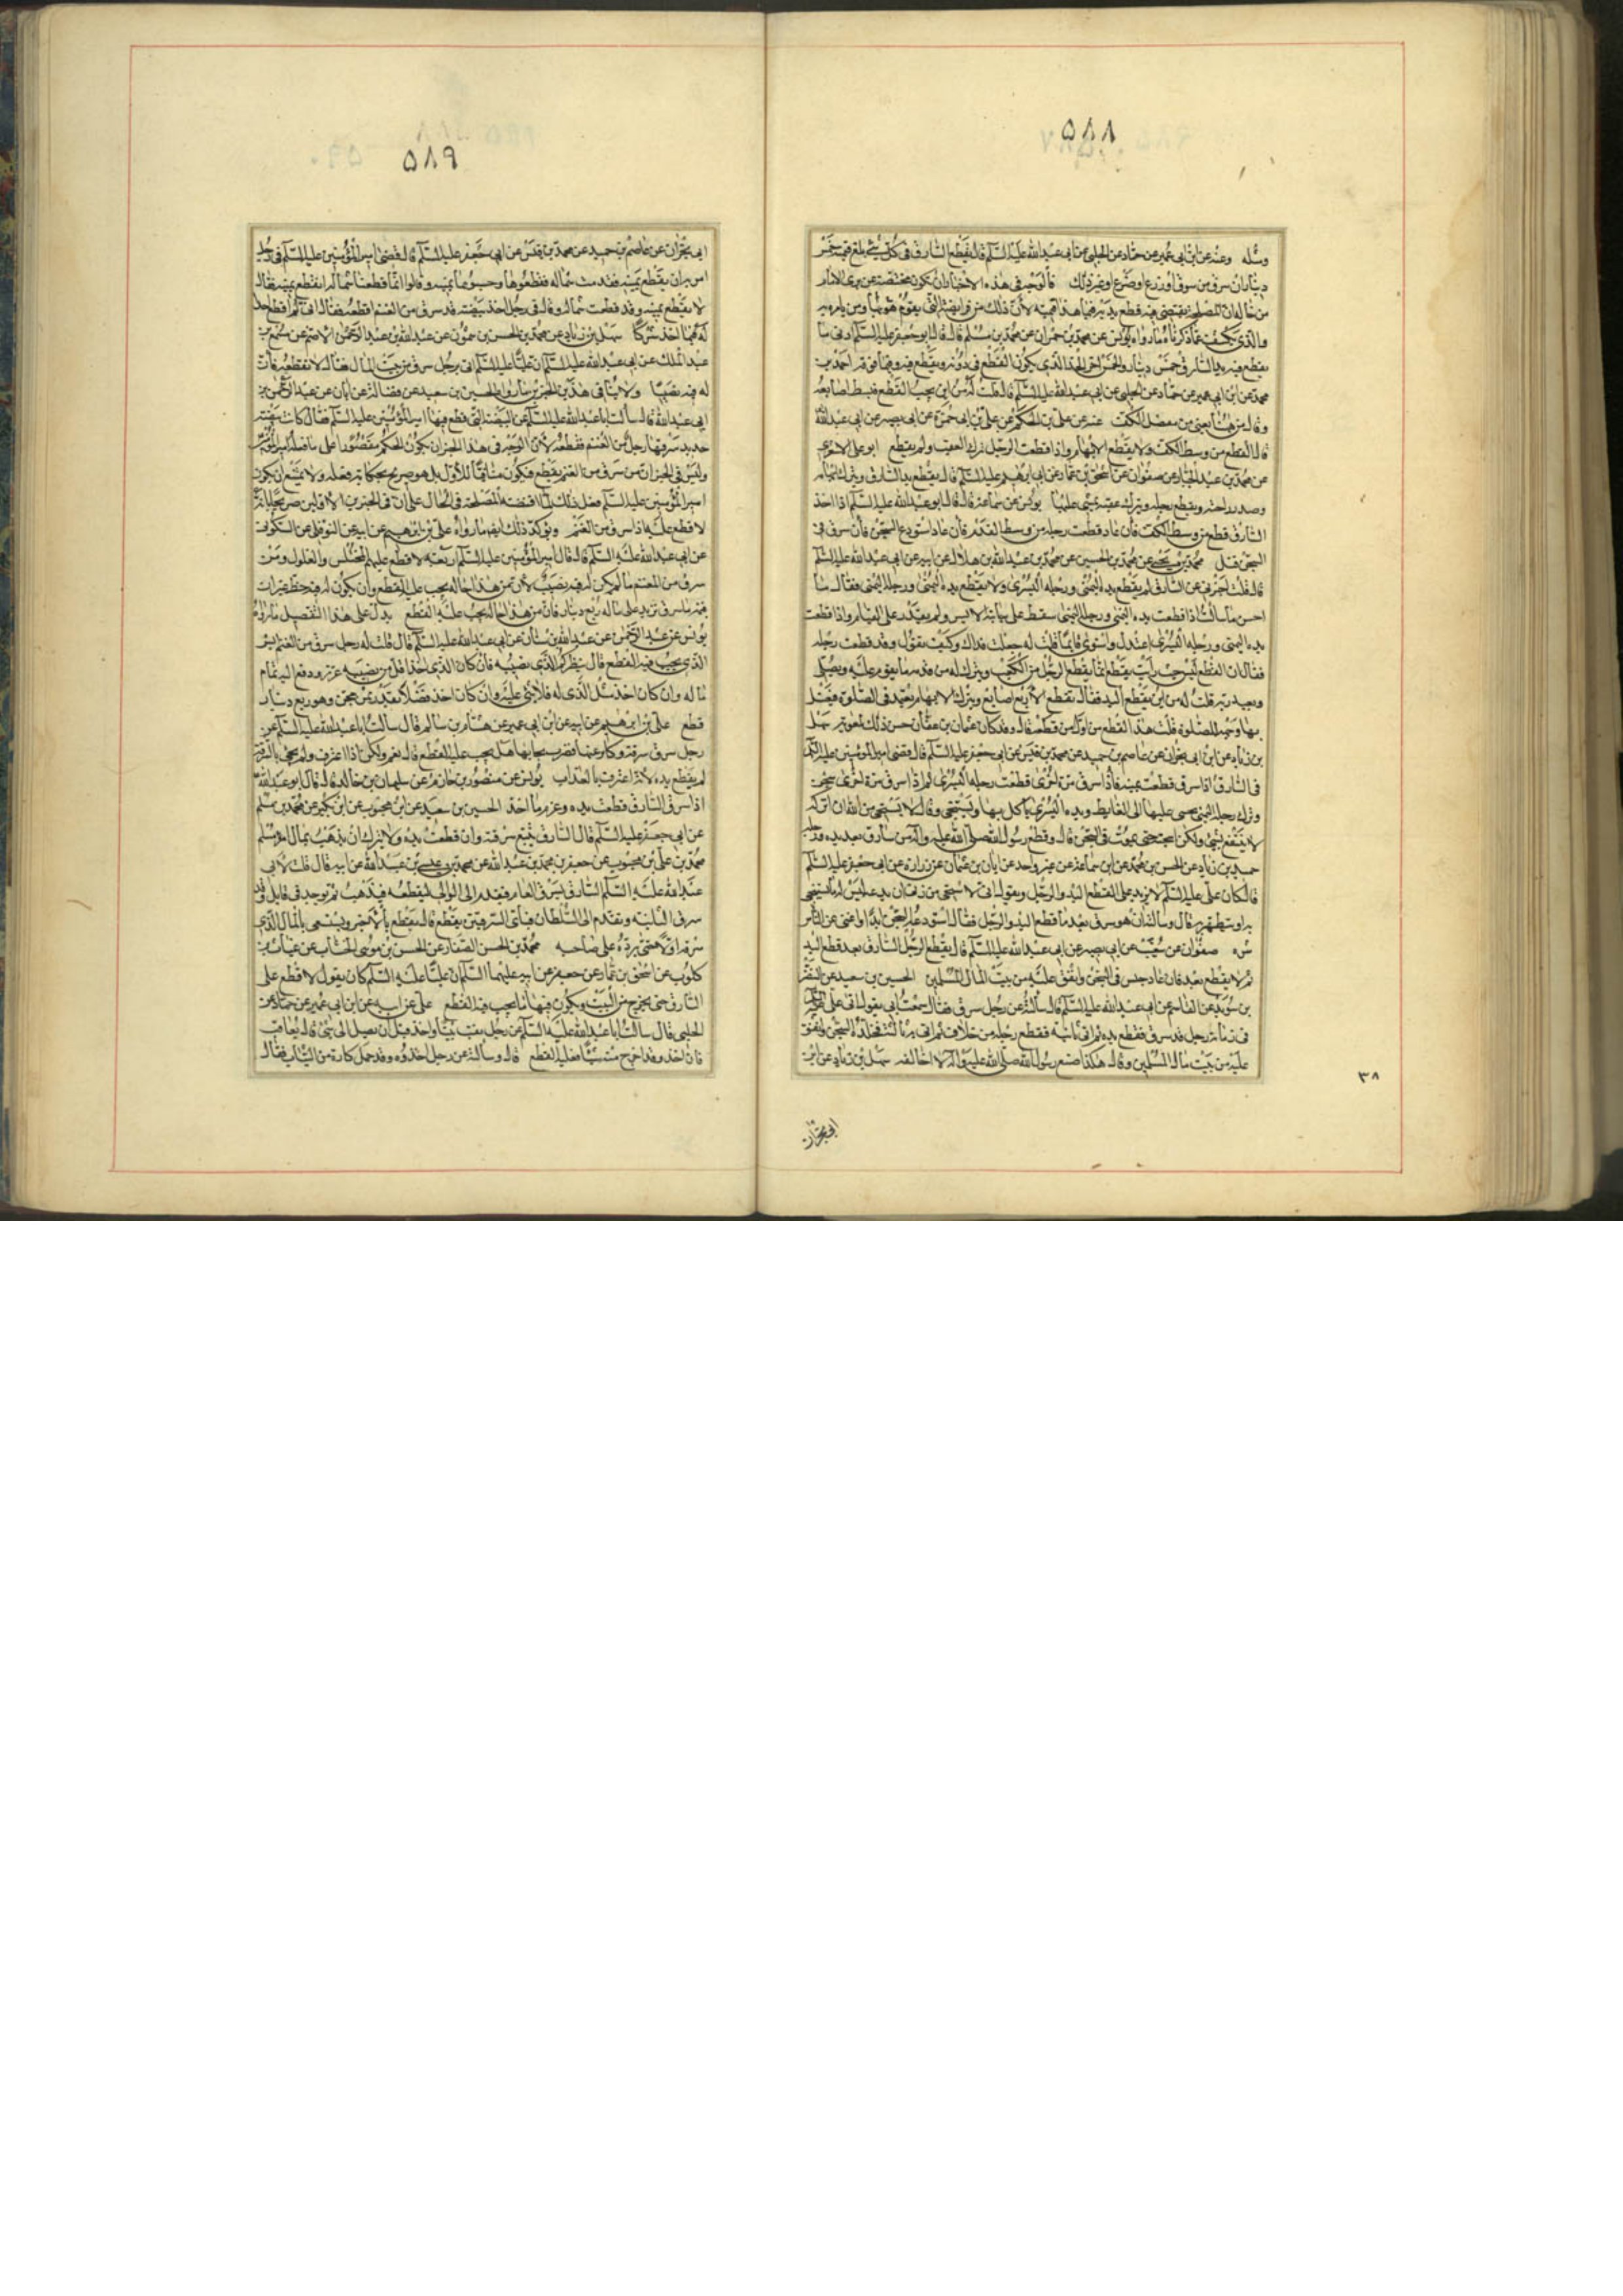 ۵۸۸
ومثله وعنه عن ابن ابي عمير عن حماد عن الحلبي عن ابي عبدالله عليه السلام قال يقطع السارق في كل شئ بلغ قيمته خمس
دينار ان سرق من سوق او زرع او ضرع او غير ذلك فالوجه في هذه الاخبار ان تكون مختصة بمن يرى الامام
من حاله ان المصلحة تقتضي فيه قطع يده
والذي يكشف عما ذكرناه ما رواه يونس عن محمد بن حمران عن محمد بن مسلم قال قال ابو جعفر عليه السلام ادنى ما
يقطع فيه يد السارق خمس دينار والخمس آخر الحد الذي لا يكون القطع في دونه ويقطع فيه وفيما فوقه احمد بن
محمد عن ابن ابي عمير عن حماد عن الحلبي عن ابي عبدالله عليه السلام قال قلت له من اين يجب القطع فبسط اصابعه
وقال من هٰهنا يعني من مفصل الكف عنه عن علي بن الحكم عن علي بن ابي حمزة عن ابي بصير عن ابي عبدالله
قال القطع من وسط الكف ولا يقطع الابهام واذا قطعت الرجل ترك العقب ولم يقطع ابو علي الاشعري
عن محمد بن عبد الجبار عن صفوان عن اسحق بن عمار عن ابي ابراهيم عليه السلام قال يقطع يد السارق ويترك ابهامه
وصدر راحته ويقطع رجله ويترك عقبه يمشي عليها يونس عن سماعة قال قال ابو عبدالله عليه السلام اذا اخذ
السارق قطع من وسط الكف فان عاد قطعت رجله من وسط القدم فان عاد استودع السجن فان سرق في
السجن قتل محمد بن يحيى عن محمد بن الحسين عن محمد بن عبدالله بن هلال عن ابيه عن ابي عبدالله عليه السلام
قال قلت له اخبرني عن السارق لم يقطع يده اليمنى ورجله اليسرى ولا يقطع يده اليمنى ورجله اليمنى فقال ما
احسن ما سألت اذا قطعت يده اليمنى ورجله اليمنى سقط على جانبه الايسر ولم يقدر على القيام واذا قطعت
يده اليمنى ورجله اليسرى اعتدل واستوى قائما قلت له جعلت فداك وكيف يقوم وقد قطعت رجله
فقال ان القطع ليس حيث رأيت يقطع انما يقطع الرجل من الكعب ويترك له من قدمه ما يقوم عليه ويصلي
ويعبد ربه قلت له من اين يقطع اليد فقال تقطع الاربع اصابع ويترك الابهام يعتمد في الصلوة فيغسل
بها وجهه للصلوة قلت هذا القطع من اول من قطعه قال وقد كان عثمان بن عفان حسن ذلك لمعوية سهل
بن زياد عن ابن ابي نجران عن عاصم بن حميد عن محمد بن قيس عن ابي جعفر عليه السلام قال قضى امير المؤمنين عليه السلام
في السارق اذا سرق قطعت يمينه فاذا سرق مرة اخرى قطعت رجله اليسرى ثم اذا سرق مرة اخرى سجنه
وترك رجله اليمنى يمشي عليها الى الغايط ويده اليسرى يأكل بها ويستنجي وقال لا يستحيي من الله ان اتركه
لا ينتفع بشئ ولكن اسجنه حتى يموت في السجن وقال وقطع رسول الله صلى الله عليه وآله من سارق بعد يده ورجله
حميد بن زياد عن الحسن بن محمد عن ابن سماعة عن غير واحد عن ابان بن عثمان عن زرارة عن ابي جعفر عليه السلام
قال كان علي عليه السلام لا يزيد على القطع اليد والرجل ويقول اني لاستحيي من ربي ان ادعه ليس له ما يستنجي
به او يتطهر به قال وسألته ان هو سرق بعد ما قطع اليد والرجل فقال استودعه السجن ابدا واغني عن الناس
شره صفوان عن شعيب عن ابي بصير عن ابي عبدالله عليه السلام قال يقطع الرجل السارق بعد قطع اليد
ثم لا يقطع بعد فان عاد حبس في السجن وانفق عليه من بيت المال المسلمين الحسين بن سعيد عن النضر
بن سويد عن القاسم عن ابي عبدالله عليه السلام قال سألته عن رجل سرق فقال سمعت ابي يقول اتى علي عليه السلام
في زمانه رجل قد سرق فقطع يده ثم اتي ثانية فقطع رجله من خلاف ثم اتي به ثالثة فخلده السجن وانفق
عليه من بيت مال المسلمين وقال هكذا صنع رسول الله صلى الله عليه وآله لا اخالفه سهل بن زياد عن ابن
٣٨
ابي نجران
۵۸۹
ابي نجران عن عاصم بن حميد عن محمد بن قيس عن ابي جعفر عليه السلام قال قضى امير المؤمنين عليه السلام في رجل
امر به ان يقطع يمينه فقدمت شماله فقطعوها وحسبوها يمينه وقالوا انما قطعنا شماله انقطع يمينه فقال
لا يقطع يمينه وقد قطعت شماله وقال في رجل اخذ بيضة قد سرق من المغنم اقطعه فقال اني لم اقطع احدا
له فيما اخذ شركا سهل بن زياد عن محمد بن الحسن بن شمون عن عبدالله بن عبدالرحمن الاصم عن مسمع بن
عبدالملك عن ابي عبدالله عليه السلام ان عليا عليه السلام اتي برجل سرق من بيت المال فقال لا نقطعه فان
له فيه نصيبا ولا ينافي هذين الخبرين ما رواه الحسين بن سعيد عن فضالة عن ابان عن عبدالرحمن بن
ابي عبدالله قال سألت ابا عبدالله عليه السلام عن البيضة التي قطع فيها امير المؤمنين عليه السلام فقال كانت بيضة
حديد سرقها رجل من المغنم فقطعه لان الوجه في هذا الخبر ان يكون الحكم مقصورا على ما فعله امير المؤمنين
وليس في الخبر ان من سرق من المغنم يقطع فيكون منافيا للاول بل هو صريح بحكاية فعله ولا يمتنع ان يكون
امير المؤمنين عليه السلام فعل ذلك لما اقتضته المصلحة في الحال على ان في الخبرين الاولين صريحا بانه
لا قطع عليه اذا سرق من المغنم ويؤكد ذلك ايضا ما رواه علي بن ابراهيم عن ابيه عن النوفلي عن السكوني
عن ابي عبدالله عليه السلام قال قال امير المؤمنين عليه السلام اربعة لا قطع عليهم المختلس والغلول ومن
سرق من المغنم
قيمة ما سرق يزيد على ماله ربع دينار فان من هذا حاله يجب عليه القطع يدل على هذا التفصيل ما رواه
يونس بن عبد الرحمن عن عبدالله بن سنان عن ابي عبدالله عليه السلام قال قلت له رجل سرق من المغنم ايش
الذي يجب فيه القطع قال ينظر كم الذي نصيبه فان كان الذي اخذ اقل من نصيبه عزر ودفع اليه تمام
ماله وان كان اخذ مثل الذي له فلا شئ عليه وان كان اخذ فضلا بقدر ثمن مجن وهو ربع دينار
قطع علي بن ابراهيم عن ابيه عن ابن ابي عمير عن هشام بن سالم قال سألت ابا عبدالله عليه السلام عن
رجل سرق سرقة وكابر عنها فضرب فجاء بها هل يجب عليه القطع قال نعم ولكن اذا اعترف ولم يجئ بالسرقة
لم يقطع يده لانه اعترف بالعذاب يونس عن منصور بن حازم عن سليمان بن خالد قال قال ابو عبدالله
اذا سرق السارق قطعت يده وغرم ما اخذ الحسين بن سعيد عن ابن محبوب عن ابن بكير عن محمد بن مسلم
عن ابي جعفر عليه السلام قال السارق يتبع بسرقته وان قطعت يده ولا يترك ان يذهب بمال امرء مسلم
محمد بن علي بن محبوب عن جعفر بن محمد بن عبدالله عن محمد بن عيسى بن عبدالله عن ابيه قال قلت لابي
عبدالله عليه السلام السارق يسرق العام فيقدم الى الوالي ليقطعه فيذهب ثم يوجد في قابل وقد
سرق الثانية ويقدم الى السلطان فباي السرقتين يقطع قال يقطع بالاخير ويستسعى بالمال الذي
سرقه اولا حتى يرده على صاحبه محمد بن الحسن الصفار عن الحسن بن موسى الخشاب عن غياث بن
كلوب عن اسحق بن عمار عن جعفر عن ابيه عليهما السلام ان عليا عليه السلام كان يقول لا قطع على
السارق حتى يخرج من البيت ويكون فيها ما يجب فيه القطع علي عن ابيه عن ابن ابي عمير عن حماد عن
الحلبي قال سألت ابا عبدالله عليه السلام عن رجل نقب بيتا واخذ قبل ان يصل الى شئ قال يعاقب
فان اخذ وقد اخرج متاعا فعليه القطع قال وسألته عن رجل اخذوه وقد حمل كارة من الثياب فقال